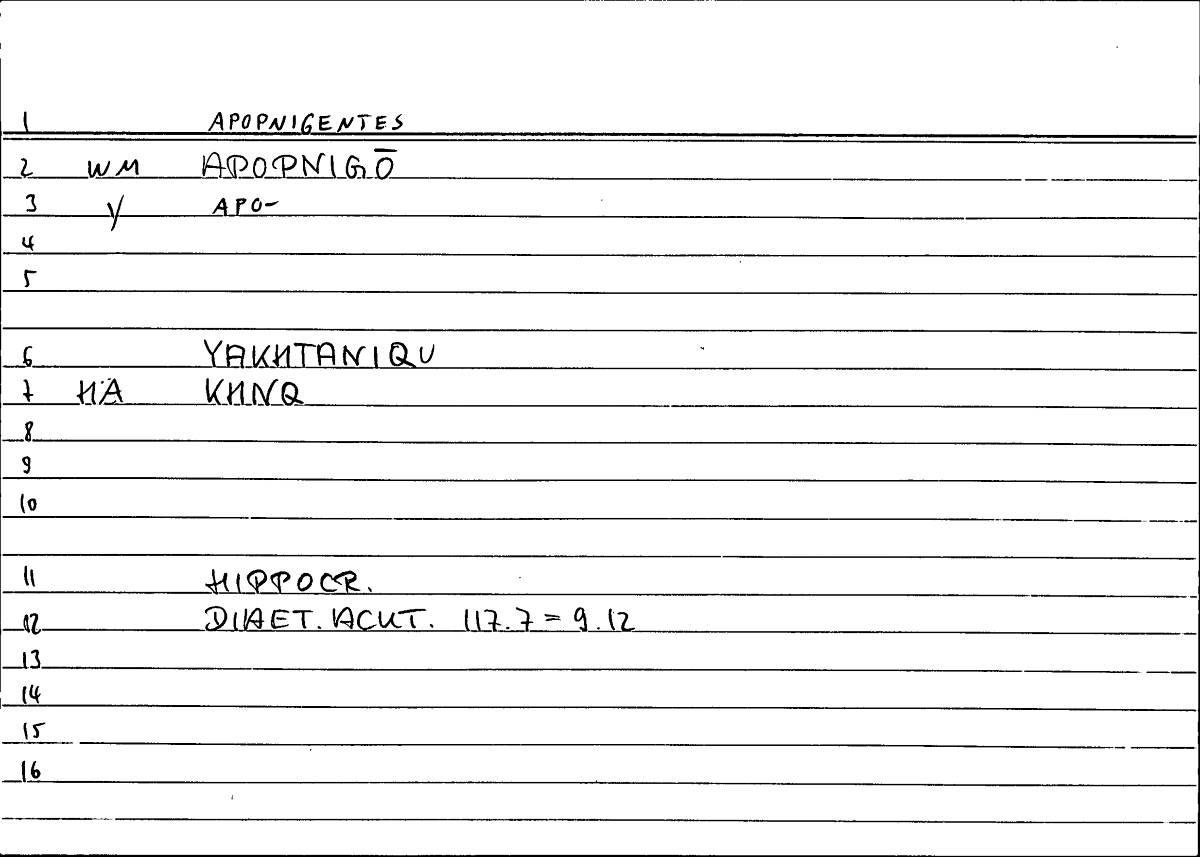 1 APOPNIGENTES
2 WM APOPNIGŌ
3 Y APO-
4
5
6 YAKHTANIQU
7 HA KHNQ
8
9
10
11 HIPPOCR.
12 DIAET. ACUT. 117.7 = 9.12
13
14
15
16